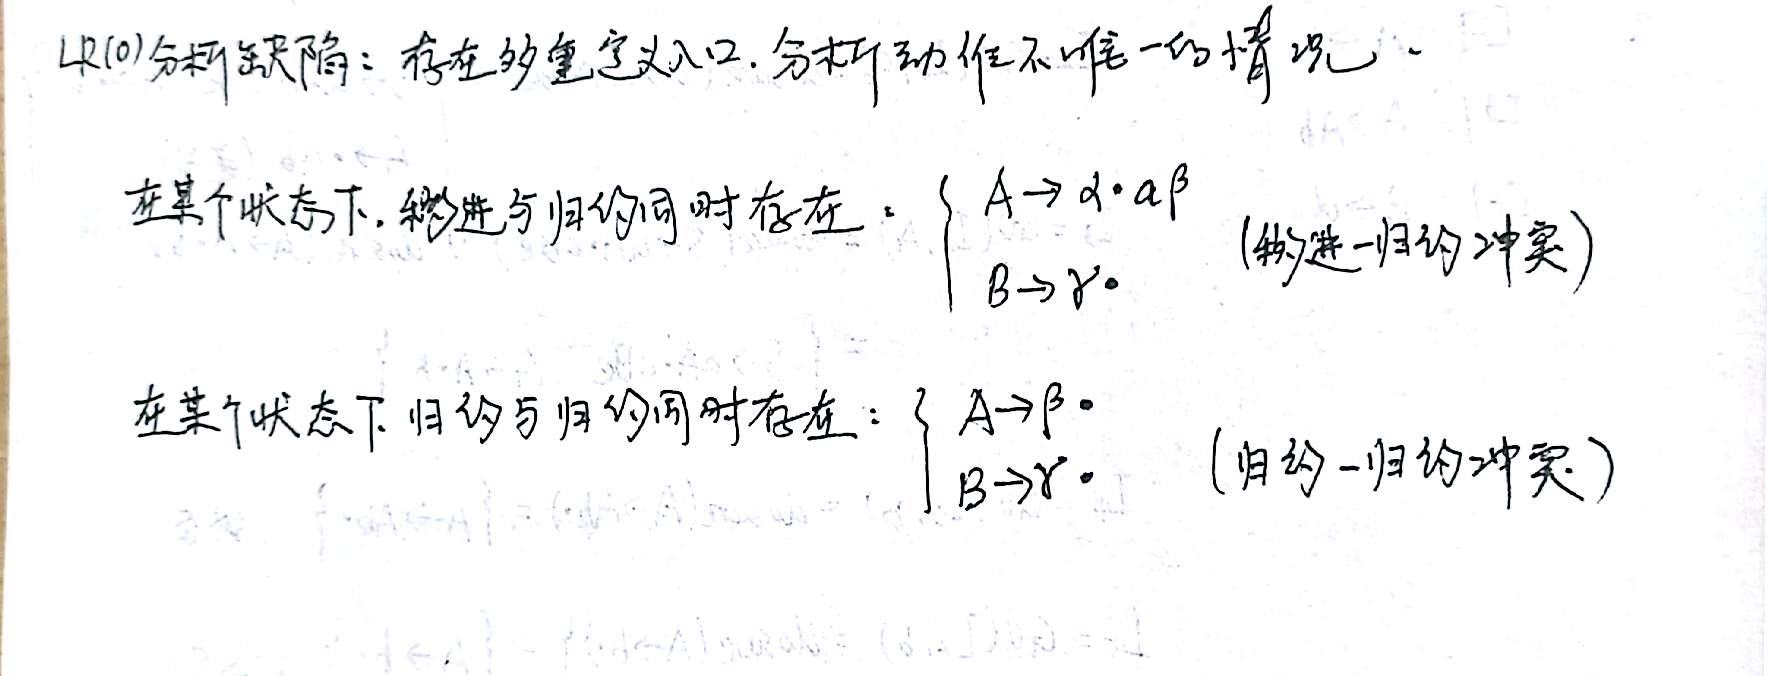 LR(0)分析缺陷：存在多重定义入口.分析动作不唯一的情况.
在某个状态下.移进与归约同时存在：{ A→α·aβ
B→γ· (移进-归约冲突)
在某个状态下归约与归约同时存在：{ A→β·
B→γ· (归约-归约冲突.)